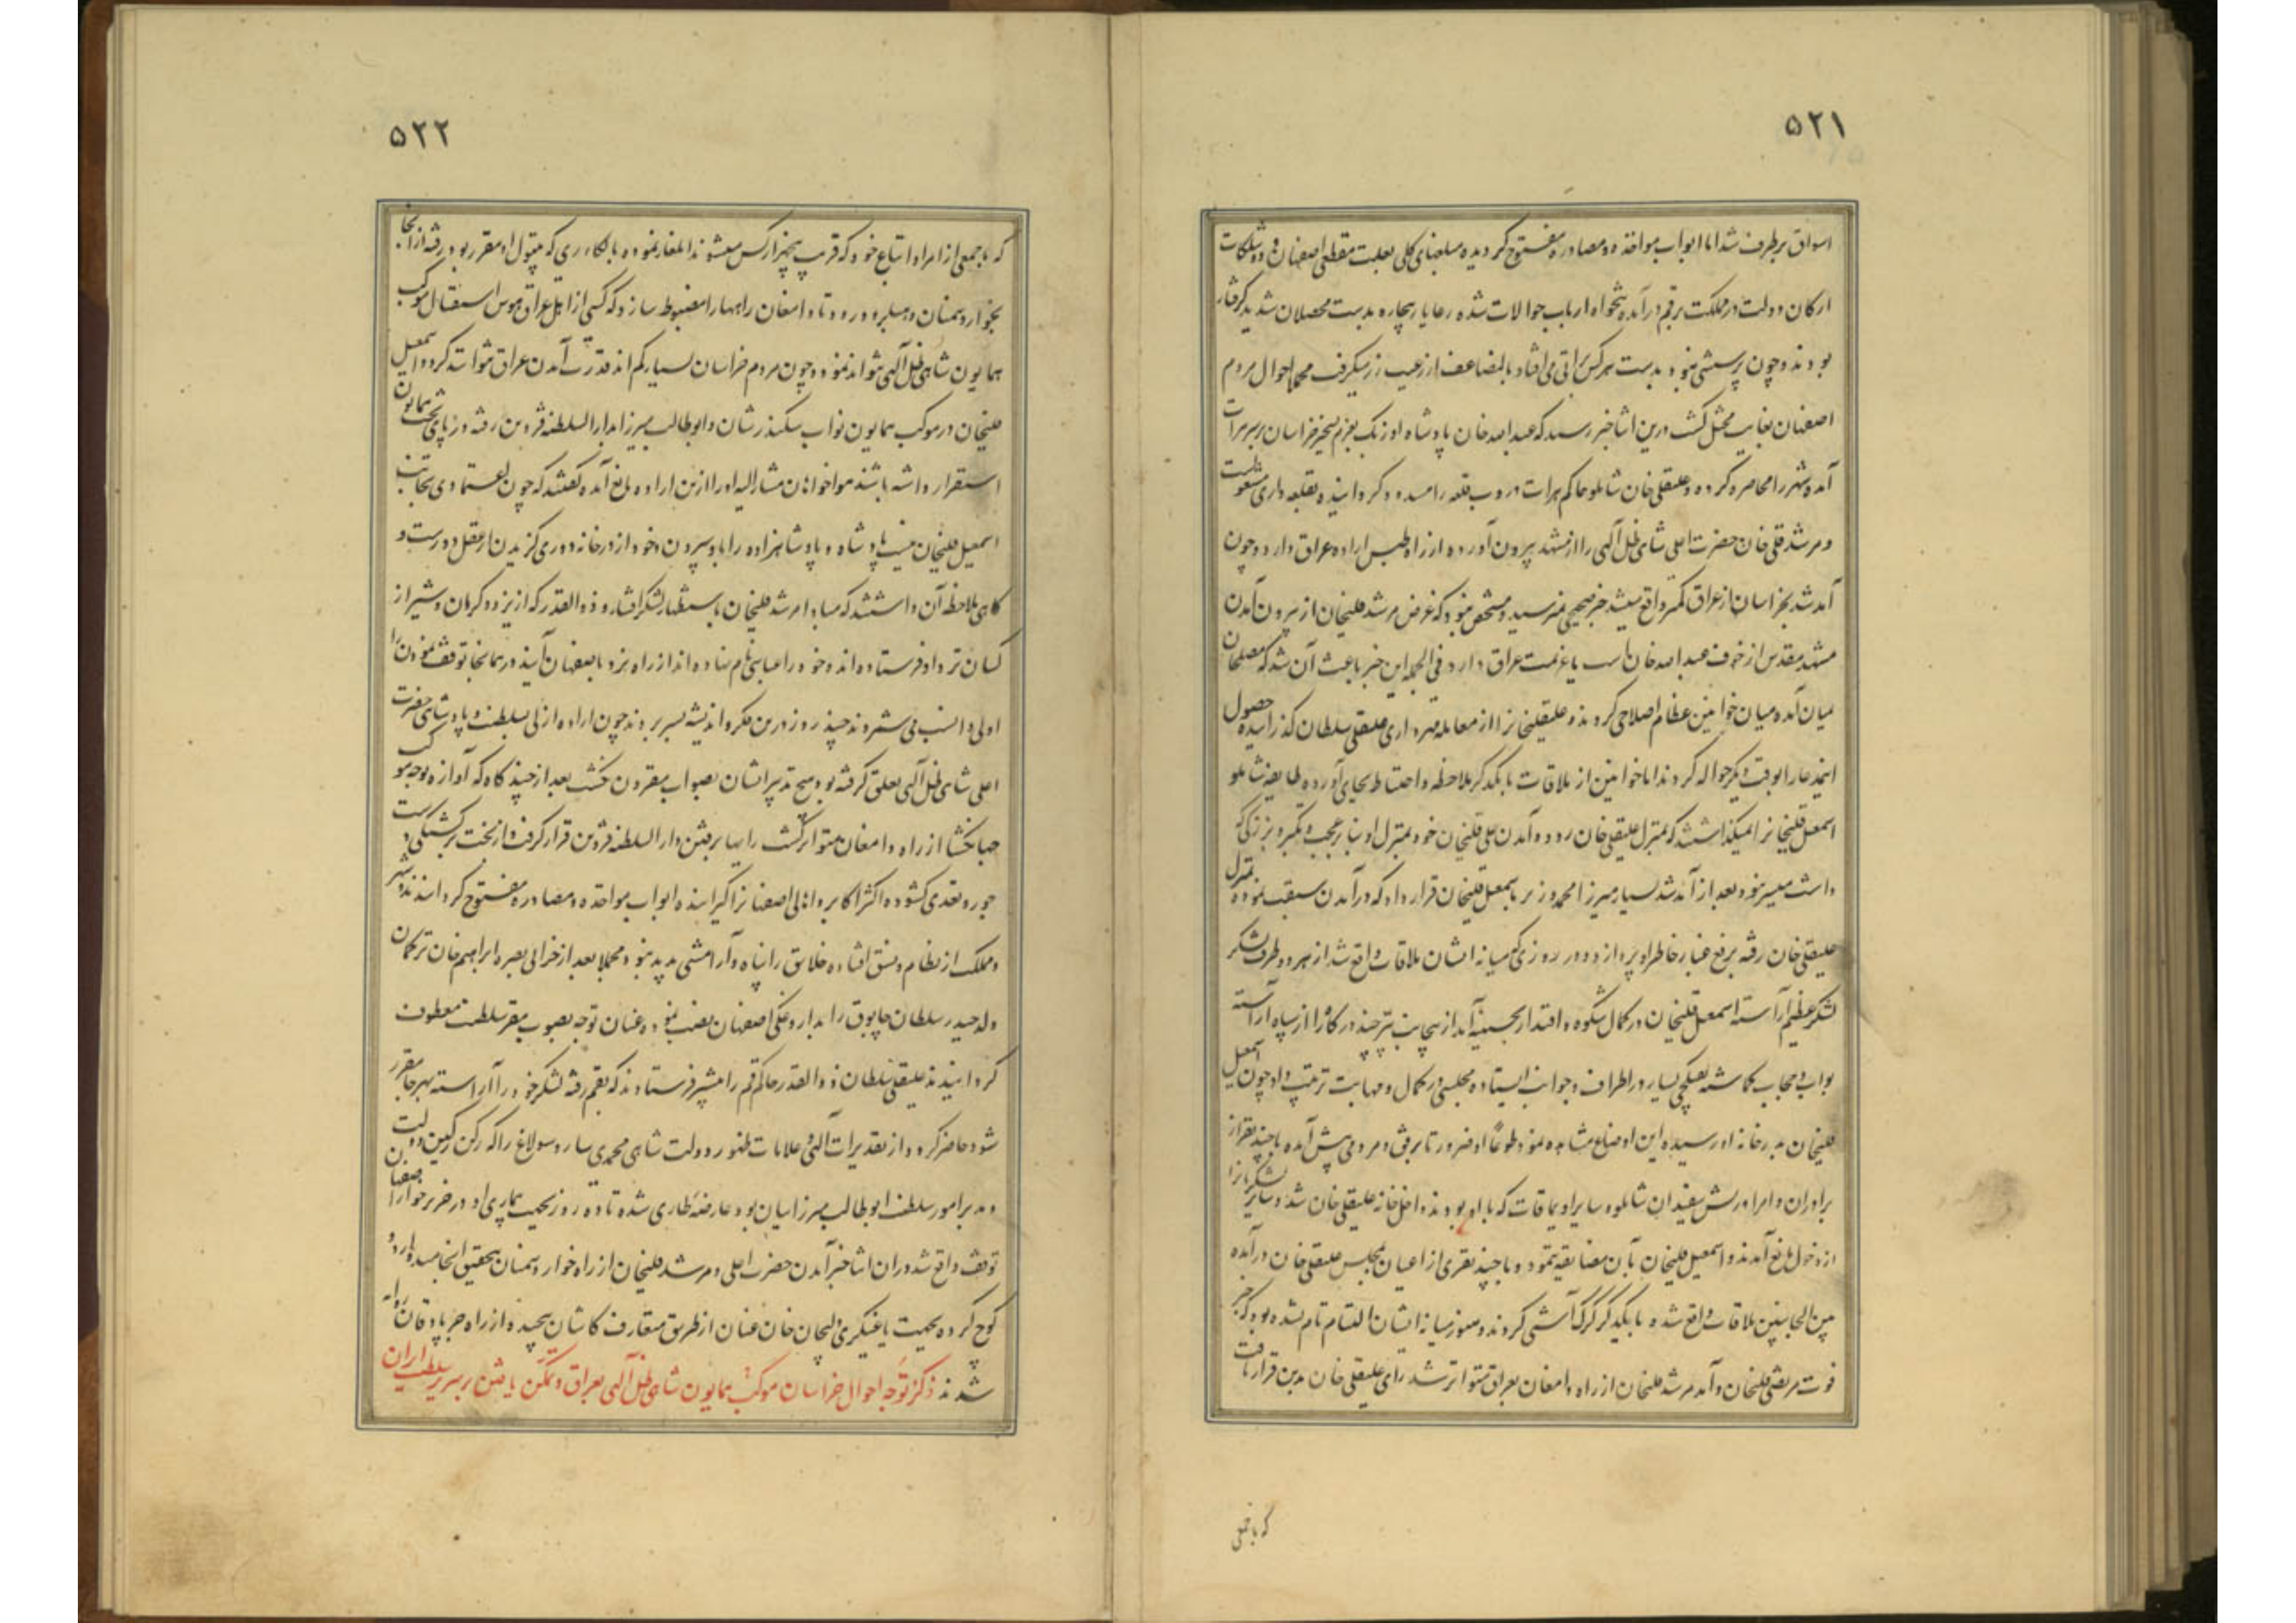 ۵۲۱
اسواق برطرف شد اما ابواب مواخذه و مصادره مفتوح گردیده مبلغهای کلی بعلت مقطعی اصفهان و
ارکان دولت در مملکت برقم درآمده تنخواه ارباب حوالات شده رعایا بیچاره بدست محصلان شدید گرفتار
بودند و چون پرسشی نبود بدست هر کس براتی می افتاد بالمضاعف از رعیت زر میگرفت مجملا احوال مردم
اصفهان بغایت مختل گشت درین اثنا خبر رسید که عبدالله خان پادشاه اوزبک بعزم تسخیر خراسان بر سر هرات
آمده شهر را محاصره کرده و علیقلی خان شاملو حاکم هرات دروب قلعه را مسدود گردانیده بقلعه داری مشغولست
و مرشد قلی خان حضرت اعلی شاهی ظل آلهی را از مشهد بیرون آورده از راه طبس اراده عراق دارد و چون
آمد شد بخراسان از عراق کمتر واقع میشد خبر صحیحی نمیرسید و مشخص نبود که غرض مرشد قلیخان از بیرون آمدن
مشهد مقدس از خوف عبدالله خان است یا عزیمت عراق دارد فی الجمله این خبر باعث آن شد که مصلحان
میان آمده میان خوانین عظام اصلاحی کردند و علیقلیخانرا از معامله مهرداری علیقلی سلطان گذرانیده حصول
اینمدعا را بوقت دیگر حواله کردند اما خوانین از ملاقات یکدیگر ملاحظه و احتیاط بجای آورده طایفه شاملو
اسمعیل قلیخانرا نمیگذاشتند که بمنزل علیقلی خان رود و آمدن علی قلیخان خود بمنزل او بنابر عجب و تکبر و بزرگی که
داشت میسر نبود بعد از آمد شد بسیار میرزا محمد وزیر باسمعیل قلیخان قرار داد که در آمدن سبقت نموده بمنزل
علیقلی خان رفته برفع غبار خاطر او پردازد و در روزی که میانه ایشان ملاقات واقع شد از هر دو طرف لشکر
لشکر عظیم آراسته اسمعیل قلیخان در کمال شکوه و اقتدار بحسینیه آمد از یجانب نیز چند درگاه را از سپاه آراسته
بواب و حجاب گماشته یعلکچی بسیار در اطراف و جوانب ایستاده مجلسی در کمال و مهابت ترتیب داد چون اسمعیل
قلیخان بدرخانه او رسیده این اوضاع مشاهده نمود طوعا او ضرورتا برفق و مردمی پیش آمده با چند نفر از
برادران و امرا و ریش سفیدان شاملو و سایر اویماقات که با او بودند داخل خانه علیقلی خان شد و سایر لشکریانرا
از دخول مانع آمدند و اسمعیل قلیخان بآن مضایقه ننمود و با چند نفری از اعیان بمجلس علیقلی خان درآمده
من الجانبین ملاقات واقع شده با یکدیگر گرگ آشتی کردند و هنوز میانه ایشان التیام تام نشده بود که خبر
فوت مرتضی قلیخان و آمدن مرشد قلیخان از راه دامغان بعراق متواتر شد رای علیقلی خان بدین قرار یافت
که با جمعی
۵۲۲
که با جمعی از امرا و اتباع خود که قریب پنجهزار کس میشوند ایلغار نموده بالکاء ری که بتیول او مقرر بود رفته از آنجا
بخوار و سمنان و هبلرود رود تا دامغان راهها را مضبوط سازد که کسی از اهل عراق هوس استقبال موکب
همایون شاهی ظل آلهی نتواند نمود و چون مردم خراسان بسیار کم اند قدرت آمدن عراق نتوانند کرد و اسمعیل
قلیخان در موکب همایون نواب سکندر شان و ابوطالب میرزا بدار السلطنه قزوین رفته در پای تخت همایون
استقرار داشته باشند هواخواهان مشارالیه او را ازین اراده مانع آمده گفتند که چون اعتمادی بجانب
اسمعیل قلیخان نیست پادشاه و پادشاهزاده را باو سپردن و خود از درخانه دوری گزیدن از عقل دورست و
گاهی ملاحظه آن داشتند که مبادا مرشد قلیخان باستظهار لشکر افشار و ذوالقدر که از یزد و کرمان و شیراز
کسان نزد او فرستاده اند و خود را عباسی نام نهاده اند از راه یزد باصفهان آیند در همانجا توقف نمودن را
اولی و انسب می شمردند چند روز درین فکر و اندیشه بسر بردند چون اراده ازلی بسلطنت و پادشاهی حضرت
اعلی شاهی ظل آلهی تعلق گرفته بود هیچ تدبیر ایشان بصواب مقرون نگشت بعد از چند گاه که آوازه توجه موکب
جهانگشا از راه دامغان متواتر گشت رایها برفتن دار السلطنه قزوین قرار گرفت و از نخست
جور و تعدی گشوده اکثر اکابر و اهالی اصفهانرا گیرانیده ابواب مواخذه و مصادره مفتوح گردانیدند و شهر
و مملکت از نظام و نسق افتاده خلایق را پناه و آرامشی پدید نبود و مجملا بعد از خرابی بصره ابراهیم خان ترکمان
ولد حیدر سلطان چابوق را بداروغگی اصفهان نصب نموده عنان توجه بصوب مقر سلطنت معطوف
گردانیدند علیقلی سلطان ذوالقدر حاکم قم را پیشتر فرستادند که بقم رفته لشکر خود را آراسته بهر جا مقرر
شود حاضر گردد از تقدیرات آلهی و علامات ظهور دولت شاهی محمدی سارو سولاغ را که رکن رکین دولت
و مدبر امور سلطنت ابوطالب میرزاییان بود عارضه طاری شده تا ده روز بجهت بیماری او در اصفهان
توقف واقع شد در آن اثنا خبر آمدن حضرت اعلی و مرشد قلیخان از راه خوار و سمنان بتحقیق انجامیده اردو
کوچ کرده بجهت یاغیگری ولیجان خان عنان از طریق متعارف کاشان پیچیده از راه جرپادقان روانه
شدند ذکر توجه احوال خراسان موکب همایون شاهی ظل آلهی بعراق و تمکن یافتن بر سریر سلطنت ایران